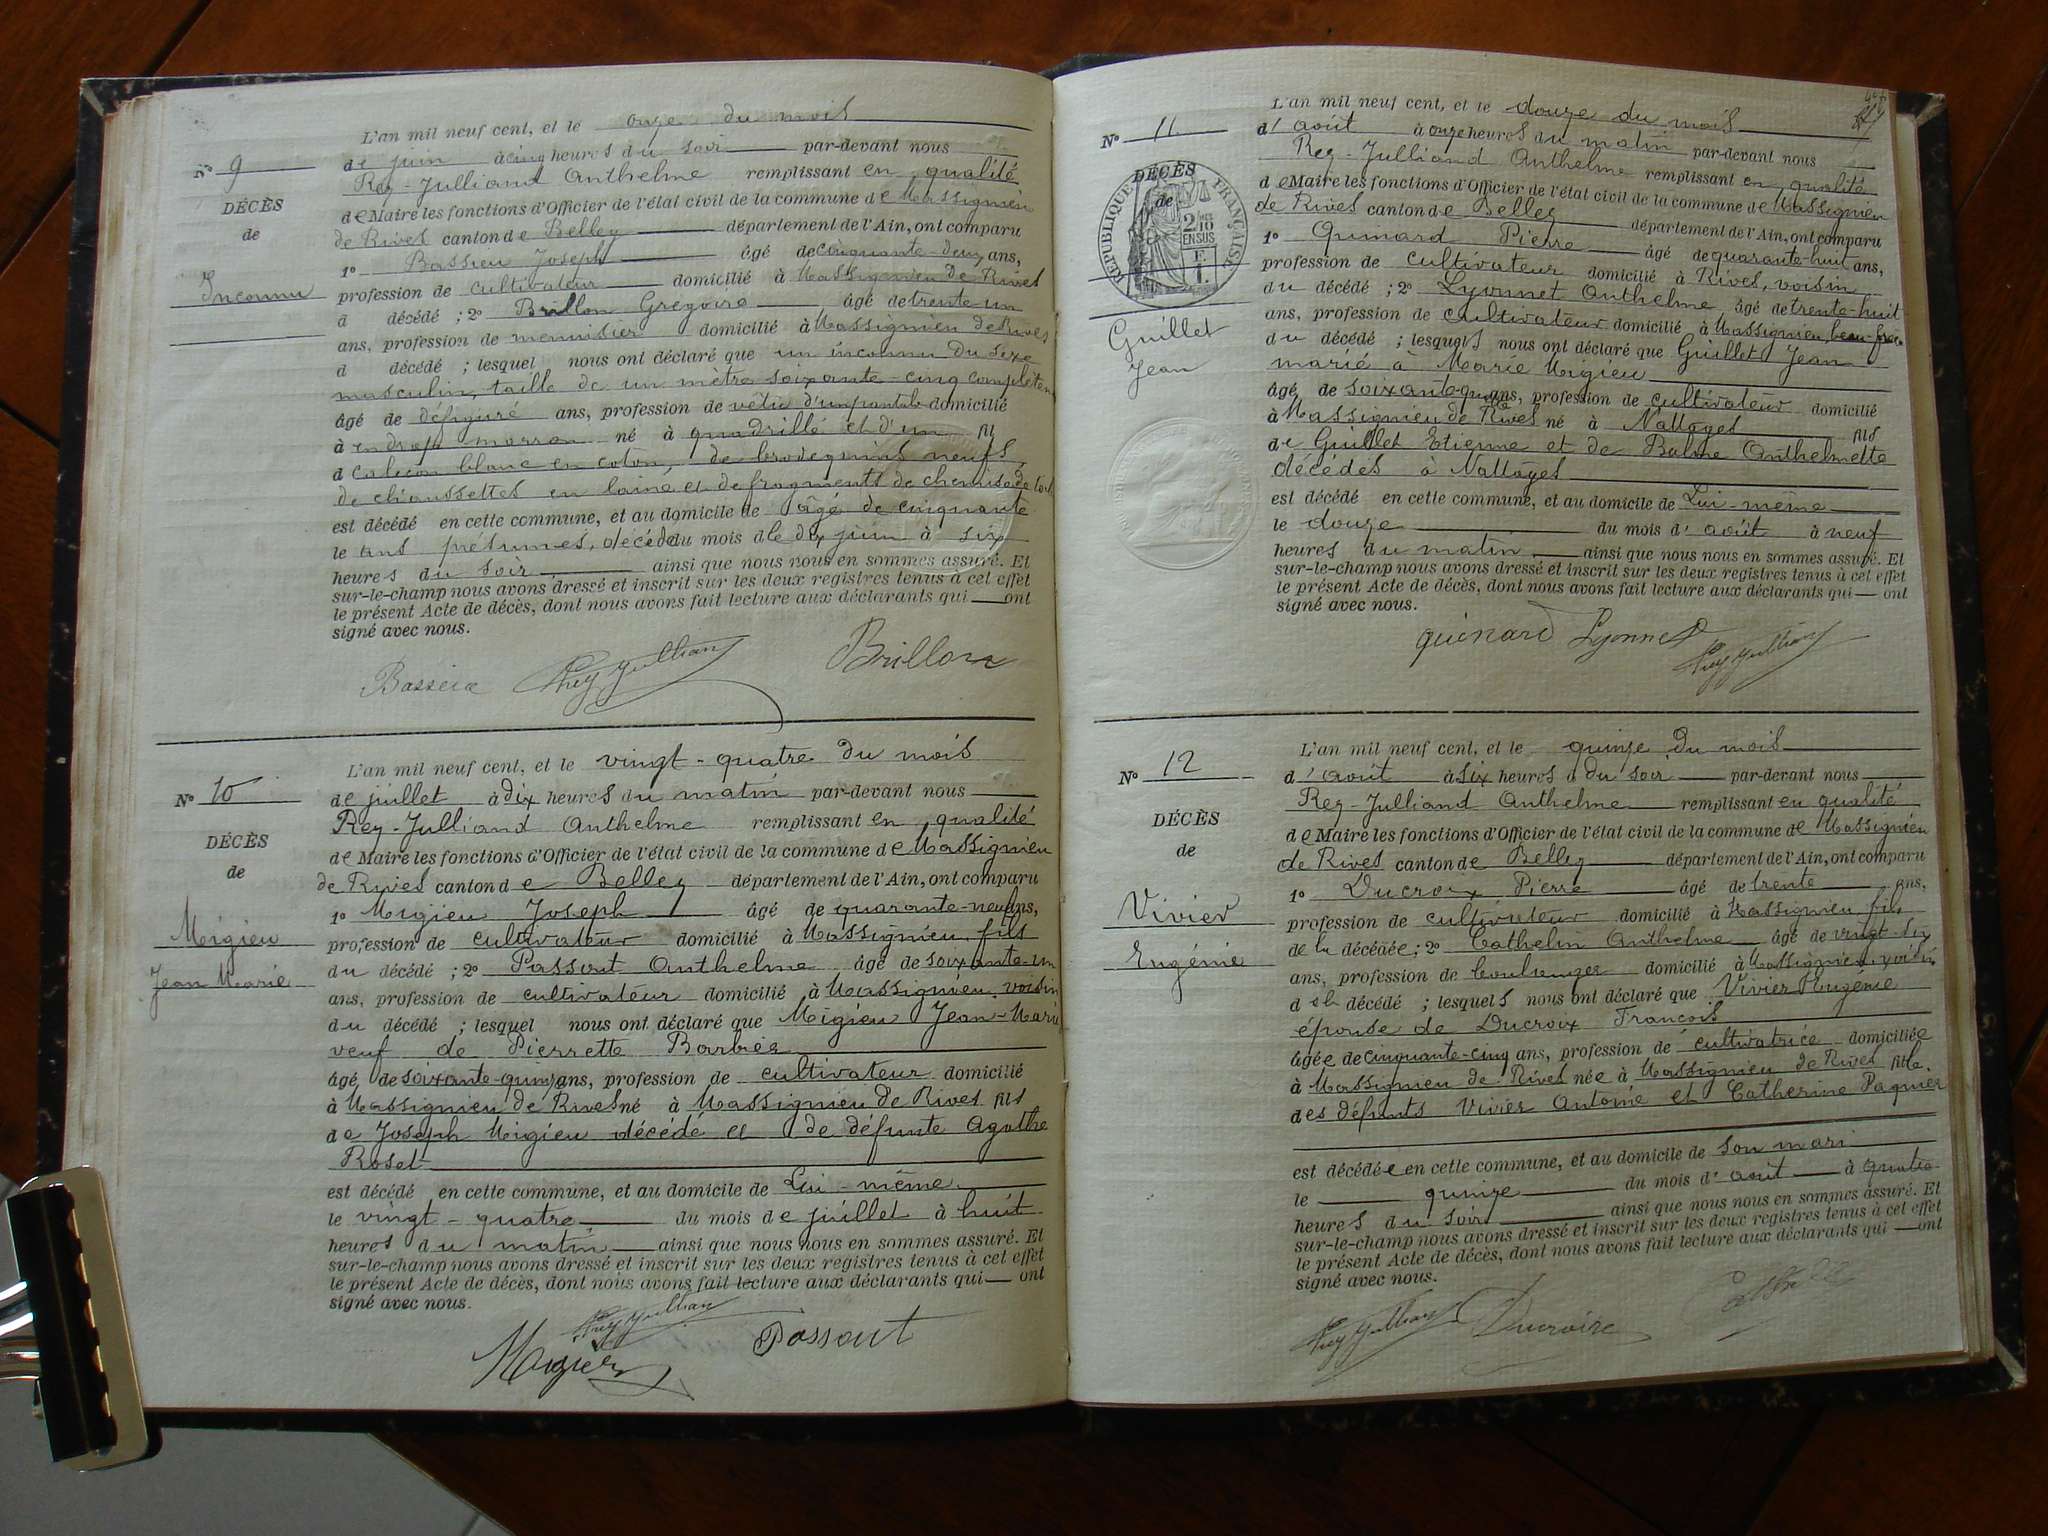 L'an mil neuf cent, et le onze du mois
N° 9
de juin à cinq heures du soir par-devant nous
Rey-Julliand Anthelme remplissant en qualité
DÉCÈS
de Maire les fonctions d'Officier de l'état civil de la commune de Massignieu
de
de Rives canton de Belley département de l'Ain, ont comparu
1° Bassieu Joseph âgé de cinquante-deux ans,
Inconnu
profession de cultivateur domicilié à Massignieu de Rives
d décédé ; 2° Brillon Gregoire âgé de trente-un
ans, profession de menuisier domicilié à Massignieu de Rives
d décédé ; lesquel nous ont déclaré que un inconnu du sexe
masculin, taille de un mètre soixante-cinq complètem
âgé de défiguré ans, profession de vêtu d'un pantalon domicilié
à en drap marron né à quadrillé et d'un fil
d caleçon blanc en coton, de brodequins neufs,
de chaussettes en laine et de fragments de chemise de
est décédé en cette commune, et au domicile de âgé de cinquante
le ans présumés, décédé du mois d le dix juin à six
heures du soir ainsi que nous nous en sommes assuré. Et
sur-le-champ nous avons dressé et inscrit sur les deux registres tenus à cet effet
le présent Acte de décès, dont nous avons fait lecture aux déclarants qui ont
signé avec nous.
Rey Jullian Brillon
L'an mil neuf cent, et le vingt-quatre du mois
N° 10
de juillet à dix heures du matin par-devant nous
Rey-Julliand Anthelme remplissant en qualité
DÉCÈS
de Maire les fonctions d'Officier de l'état civil de la commune de Massignieu
de
de Rives canton de Belley département de l'Ain, ont comparu
1° Migieu Joseph âgé de quarante-neuf ans,
Migieu
Jean Marie
profession de cultivateur domicilié à Massignieu, fils
du décédé ; 2° Passout Anthelme âgé de soixante-un
ans, profession de cultivateur domicilié à Massignieu, voisin
du décédé ; lesquel nous ont déclaré que Migieu Jean-Marie
veuf de Pierrette Barbier
âgé de soixante-quinze ans, profession de cultivateur domicilié
à Massignieu de Rives né à Massignieu de Rives fils
de Joseph Migieu décédé et de défunte Agathe
Roset
est décédé en cette commune, et au domicile de Lui-même
le vingt-quatre du mois de juillet à huit
heures du matin ainsi que nous nous en sommes assuré. Et
sur-le-champ nous avons dressé et inscrit sur les deux registres tenus à cet effet
le présent Acte de décès, dont nous avons fait lecture aux déclarants qui ont
signé avec nous.
Rey Jullian
Migieu Passout
L'an mil neuf cent, et le douze du mois
N° 11
d'août à onze heures du matin par-devant nous
Rey-Julliand Anthelme remplissant en qualité
DÉCÈS
de
RÉPUBLIQUE FRANÇAISE
2/10 EN SUS
de Maire les fonctions d'Officier de l'état civil de la commune de Massignieu
de Rives canton de Belley département de l'Ain, ont comparu
1° Guinard Pierre âgé de quarante-huit ans,
profession de cultivateur domicilié à Rives, voisin
du décédé ; 2° Lyonnet Anthelme âgé de trente-huit
ans, profession de cultivateur domicilié à Massignieu, beau-frère
Guillet
Jean
du décédé ; lesquels nous ont déclaré que Guillet Jean
marié à Marie Migieu
âgé de soixante-quatre ans, profession de cultivateur domicilié
à Massignieu de Rives né à Nattages fils
de Guillet Etienne et de Balme Anthelmette
décédés à Nattages
est décédé en cette commune, et au domicile de Lui-même
le douze du mois d'août à neuf
heures du matin ainsi que nous nous en sommes assuré. Et
sur-le-champ nous avons dressé et inscrit sur les deux registres tenus à cet effet
le présent Acte de décès, dont nous avons fait lecture aux déclarants qui ont
signé avec nous.
Guinard Lyonnet
Rey Jullian
L'an mil neuf cent, et le quinze du mois
N° 12
d'août à six heures du soir par-devant nous
Rey-Julliand Anthelme remplissant en qualité
DÉCÈS
de Maire les fonctions d'Officier de l'état civil de la commune de Massignieu
de
de Rives canton de Belley département de l'Ain, ont comparu
1° Ducroix Pierre âgé de trente ans,
Vivier
Eugénie
profession de cultivateur domicilié à Massignieu, fils
de la décédée ; 2° Cathelin Anthelme âgé de vingt-six
ans, profession de boulanger domicilié à Massignieu, voisin
de la décédé ; lesquels nous ont déclaré que Vivier Eugénie
épouse de Ducroix François
âgée de cinquante-cinq ans, profession de cultivatrice domiciliée
à Massignieu de Rives née à Massignieu de Rives fille
des défunts Vivier Antoine et Catherine Paquier
est décédée en cette commune, et au domicile de son mari
le quinze du mois d'août à quatre
heures du soir ainsi que nous nous en sommes assuré. Et
sur-le-champ nous avons dressé et inscrit sur les deux registres tenus à cet effet
le présent Acte de décès, dont nous avons fait lecture aux déclarants qui ont
signé avec nous.
Rey Jullian Ducroix